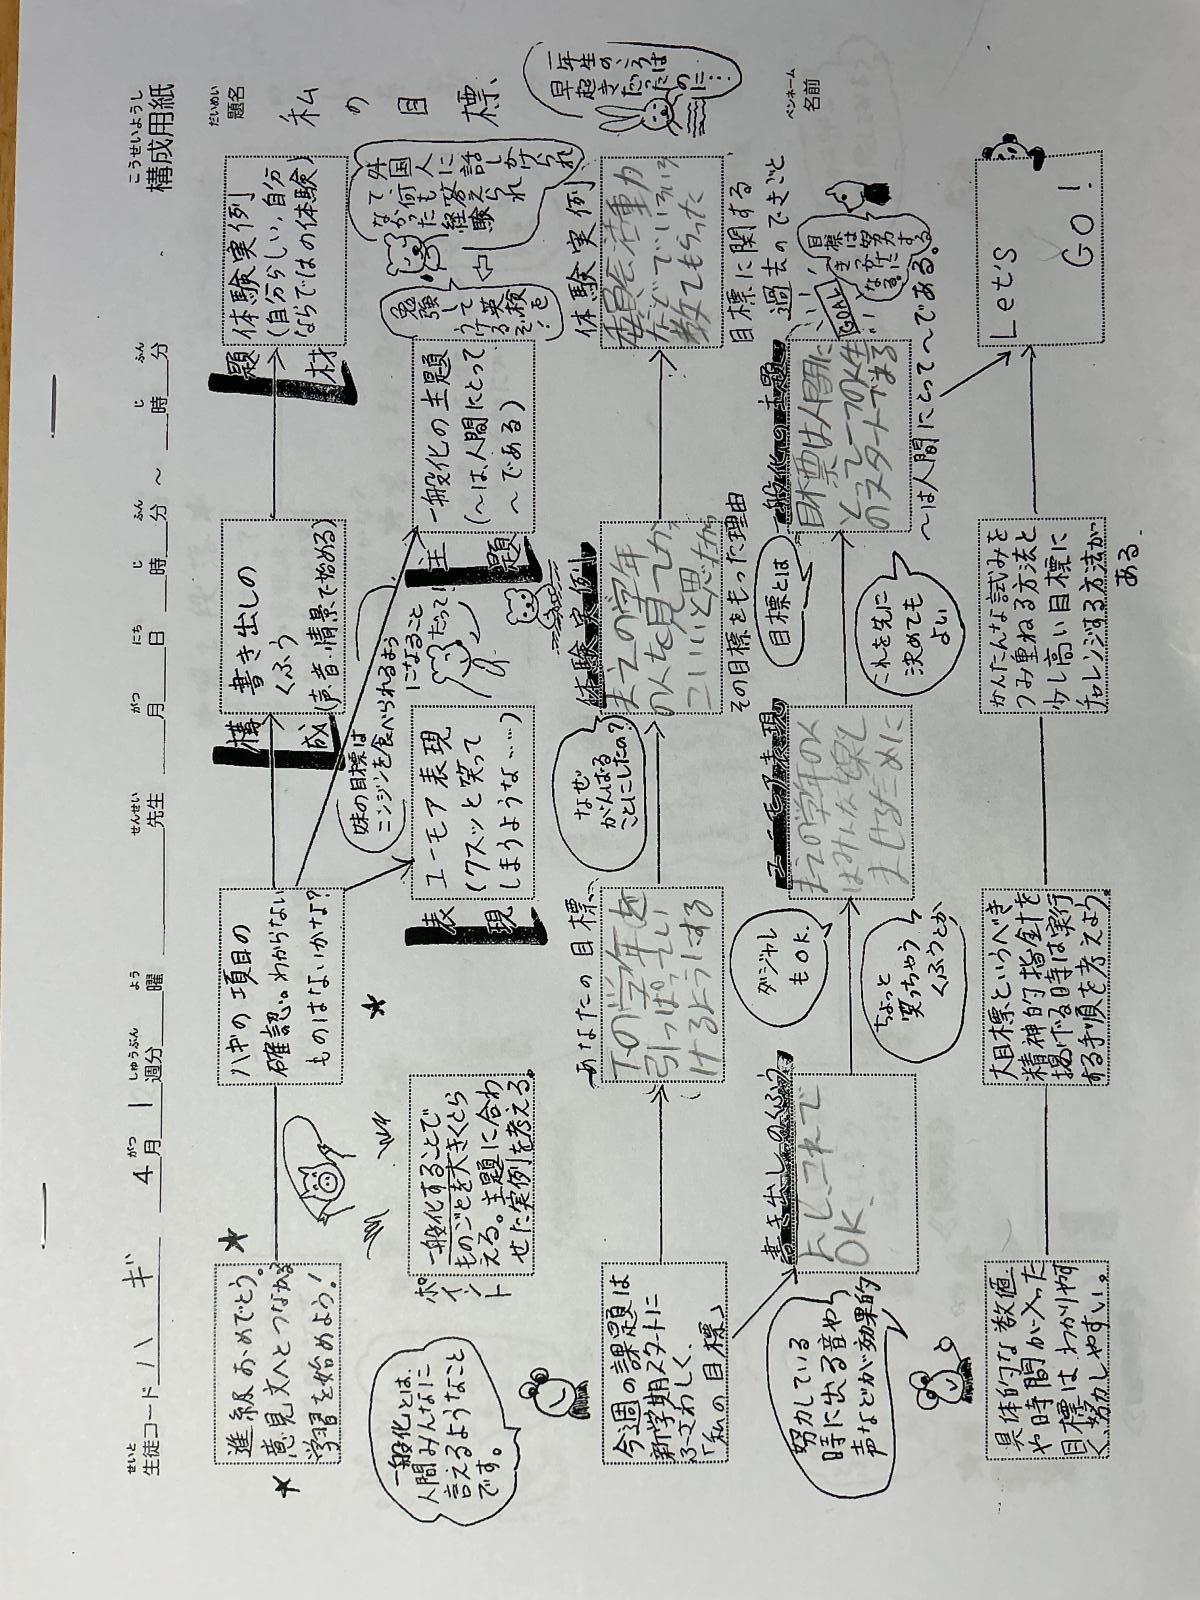 こうせいようし
構成用紙
せいと
生徒コード ハギ 4月 1 週分 曜 先生 月 日 時 分 ~ 時 分
がつ しゅうぶん よう せんせい がつ にち じ ふん じ ふん
だいめい
題名
私の目標
ペンネーム
名前
進級おめでとう。
意見文へとつながる
学習を始めよう!
ハギの項目の
確認。わからない
ものはないかな?
構成
書き出しの
くふう
(声・音・情景で始める)
題材
体験実例
(自分らしい,自分
ならではの体験)
一般化とは、
人間みんなに
言えるようなこと
です。
ポイント
一般化することで
ものごとを大きくとら
える。主題に合わ
せた実例を考える。
表現
ユーモア表現
(クスッと笑って
しまうような……)
妹の目標は
ニンジンを食べられるよう
になること
だって!
主題
一般化の主題
(~は、人間にとって
~である)
外国人に
話しかけられ
て、何も
答えられ
なかった
経験
勉強して
英検を
うけるぞ!
一年生の、ころは
早起きだった
のに…
今週の課題は
新学期スタートに
ふさわしく、
「私の目標」
あなたの目標、
下の学年を
引っぱってい
けるようにする
なぜ
がんばる
ことにしたの?
体験実例
まえの学年
の人を見てかっ
こいいと思ったから
その目標をもった理由
体験実例
委員会活動
などでいろいろ
教えてもらった
目標に関する
過去のできごと
努力している
時に出る音や
声などが効果的
書き出しのくふう
よし、これで
OK、
ダジャレ
もOK.
ちょっと
笑っちゃう
くふうとか、
ユーモア表現
まえの学年の人
はみんなを楽し
ませるために
目標とは
これを先に
決めても
よい
一般化の主題
目標は人間に
とって
のスタートである
~は人間にとって~である。
GOAL
目標は
努力する
きっかけに
なる
具体的な数値
や時間が入った
目標は わかりやす
く、努力しやすい。
大目標というべき
精神的指針を
掲げる時は実行
する手順を考えよう。
かんたんな試みを
つみ重ねる方法と
少し高い目標に
チャレンジする方法が
ある.
Let's
GO!